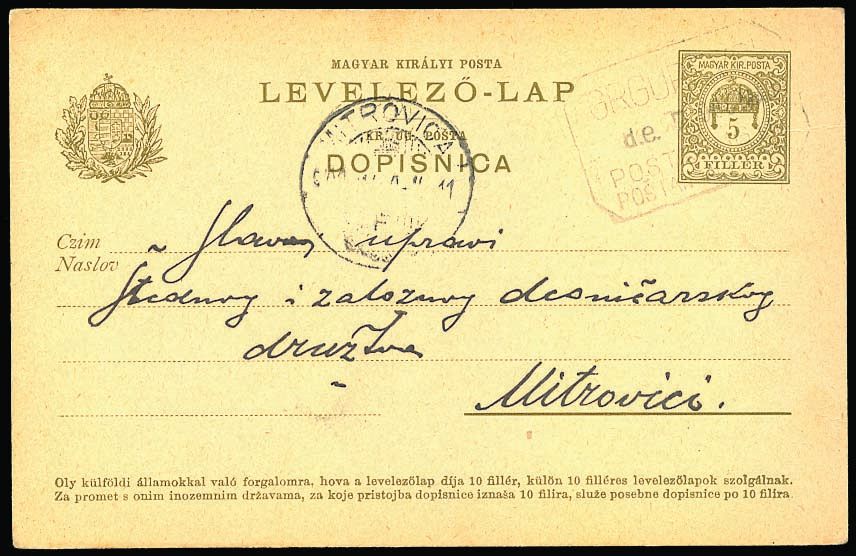 MAGYAR KIRÁLYI POSTA
LEVELEZŐ-LAP
KR. UG. POŠTA
DOPISNICA
MAGYAR KIR. POSTA
5
FILLÉR
MITROVICA
d.e.
POST
Czim
Naslov
Slavnoj upravi
štednog i založnog desničarskog
družtva
Mitrovici.
Oly külföldi államokkal való forgalomra, hova a levelezőlap díja 10 fillér, külön 10 filléres levelezőlapok szolgálnak.
Za promet s onim inozemnim državama, za koje pristojba dopisnice iznaša 10 filira, služe posebne dopisnice po 10 filira